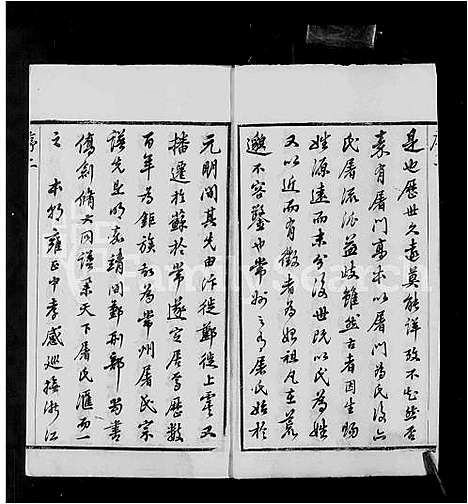 是也歷世久遠莫能詳攷不知然否
秦有屠門高本以屠門為氏後亦
氏屠流派益歧雖然古者因生賜
姓源遠而末分後世既以氏為姓
又以近而有徵者為始祖凡在荒
邈不容鑿也常州之有屠氏始於
元明間其先由汴徙鄭徙上虞又
播遷於蘇於常遂定居焉歷數
百年為鉅族初為常州屠氏宗
譜先是明嘉靖間鄞刑部尚書
僑創脩大同譜系天下屠氏滙而一
之 本朝雍正中孝感巡撫浙江
序二
FamilySearch